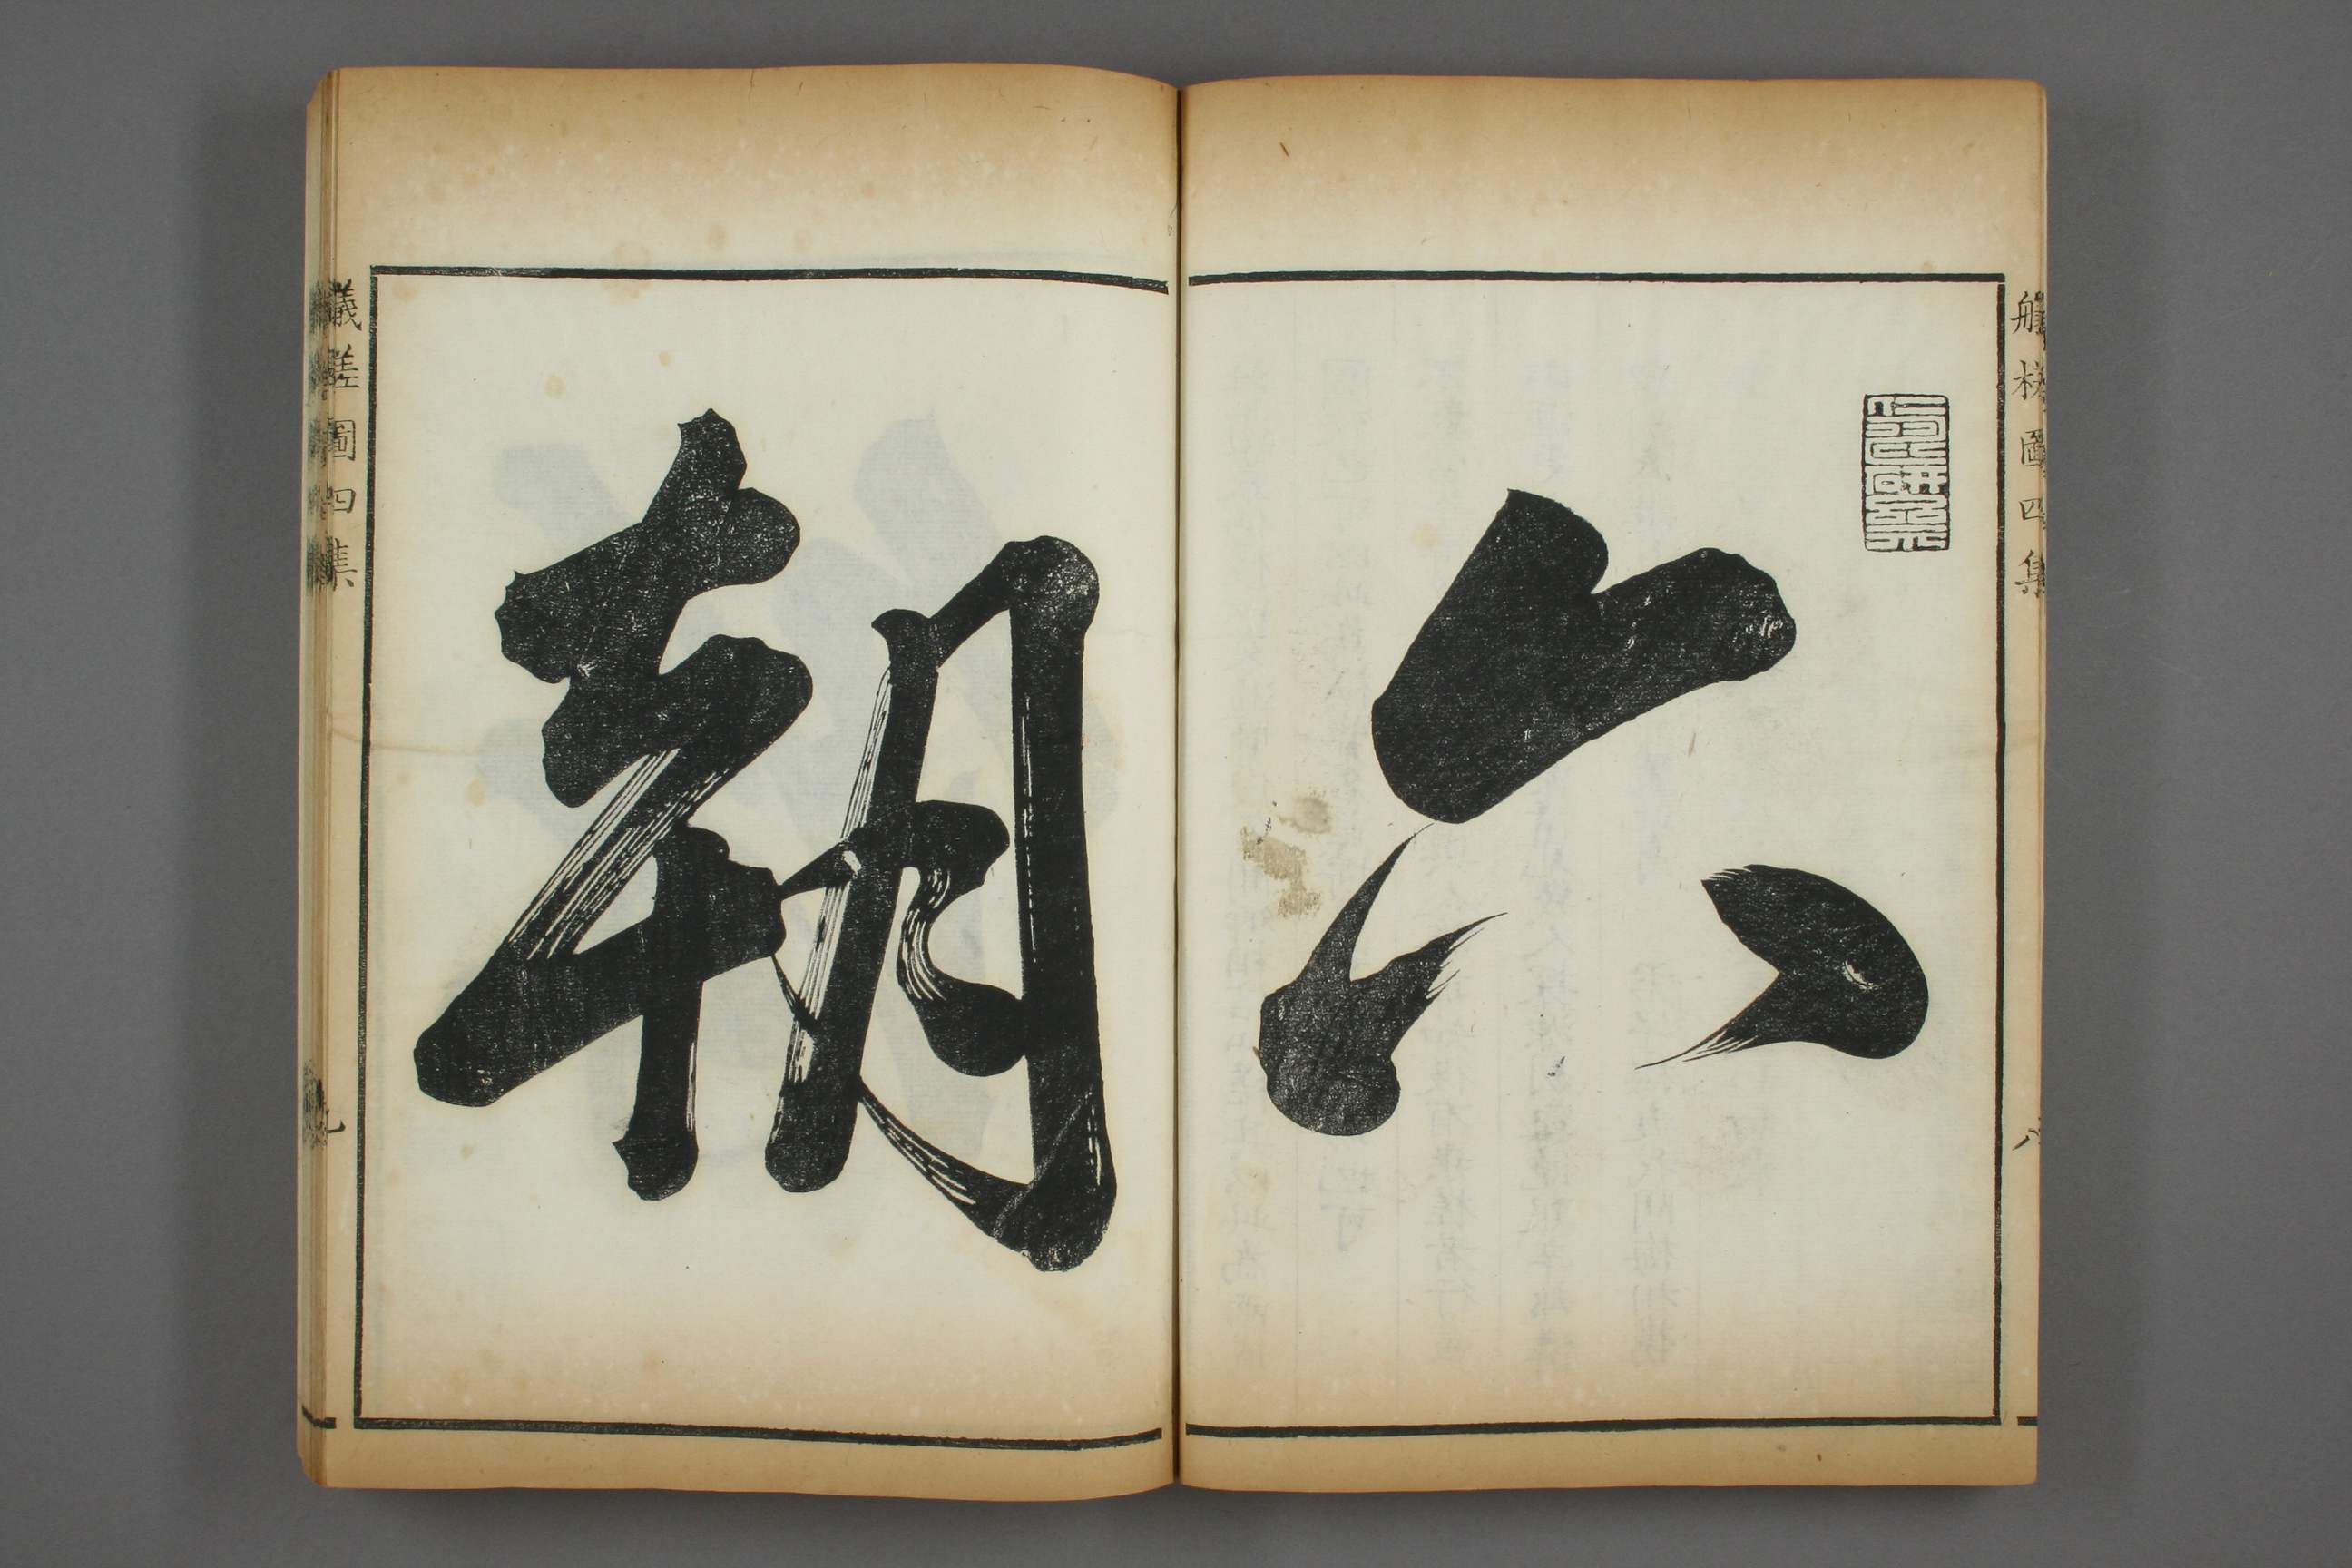 艤槎圖四集
八
六
朝
艤槎圖四集
九